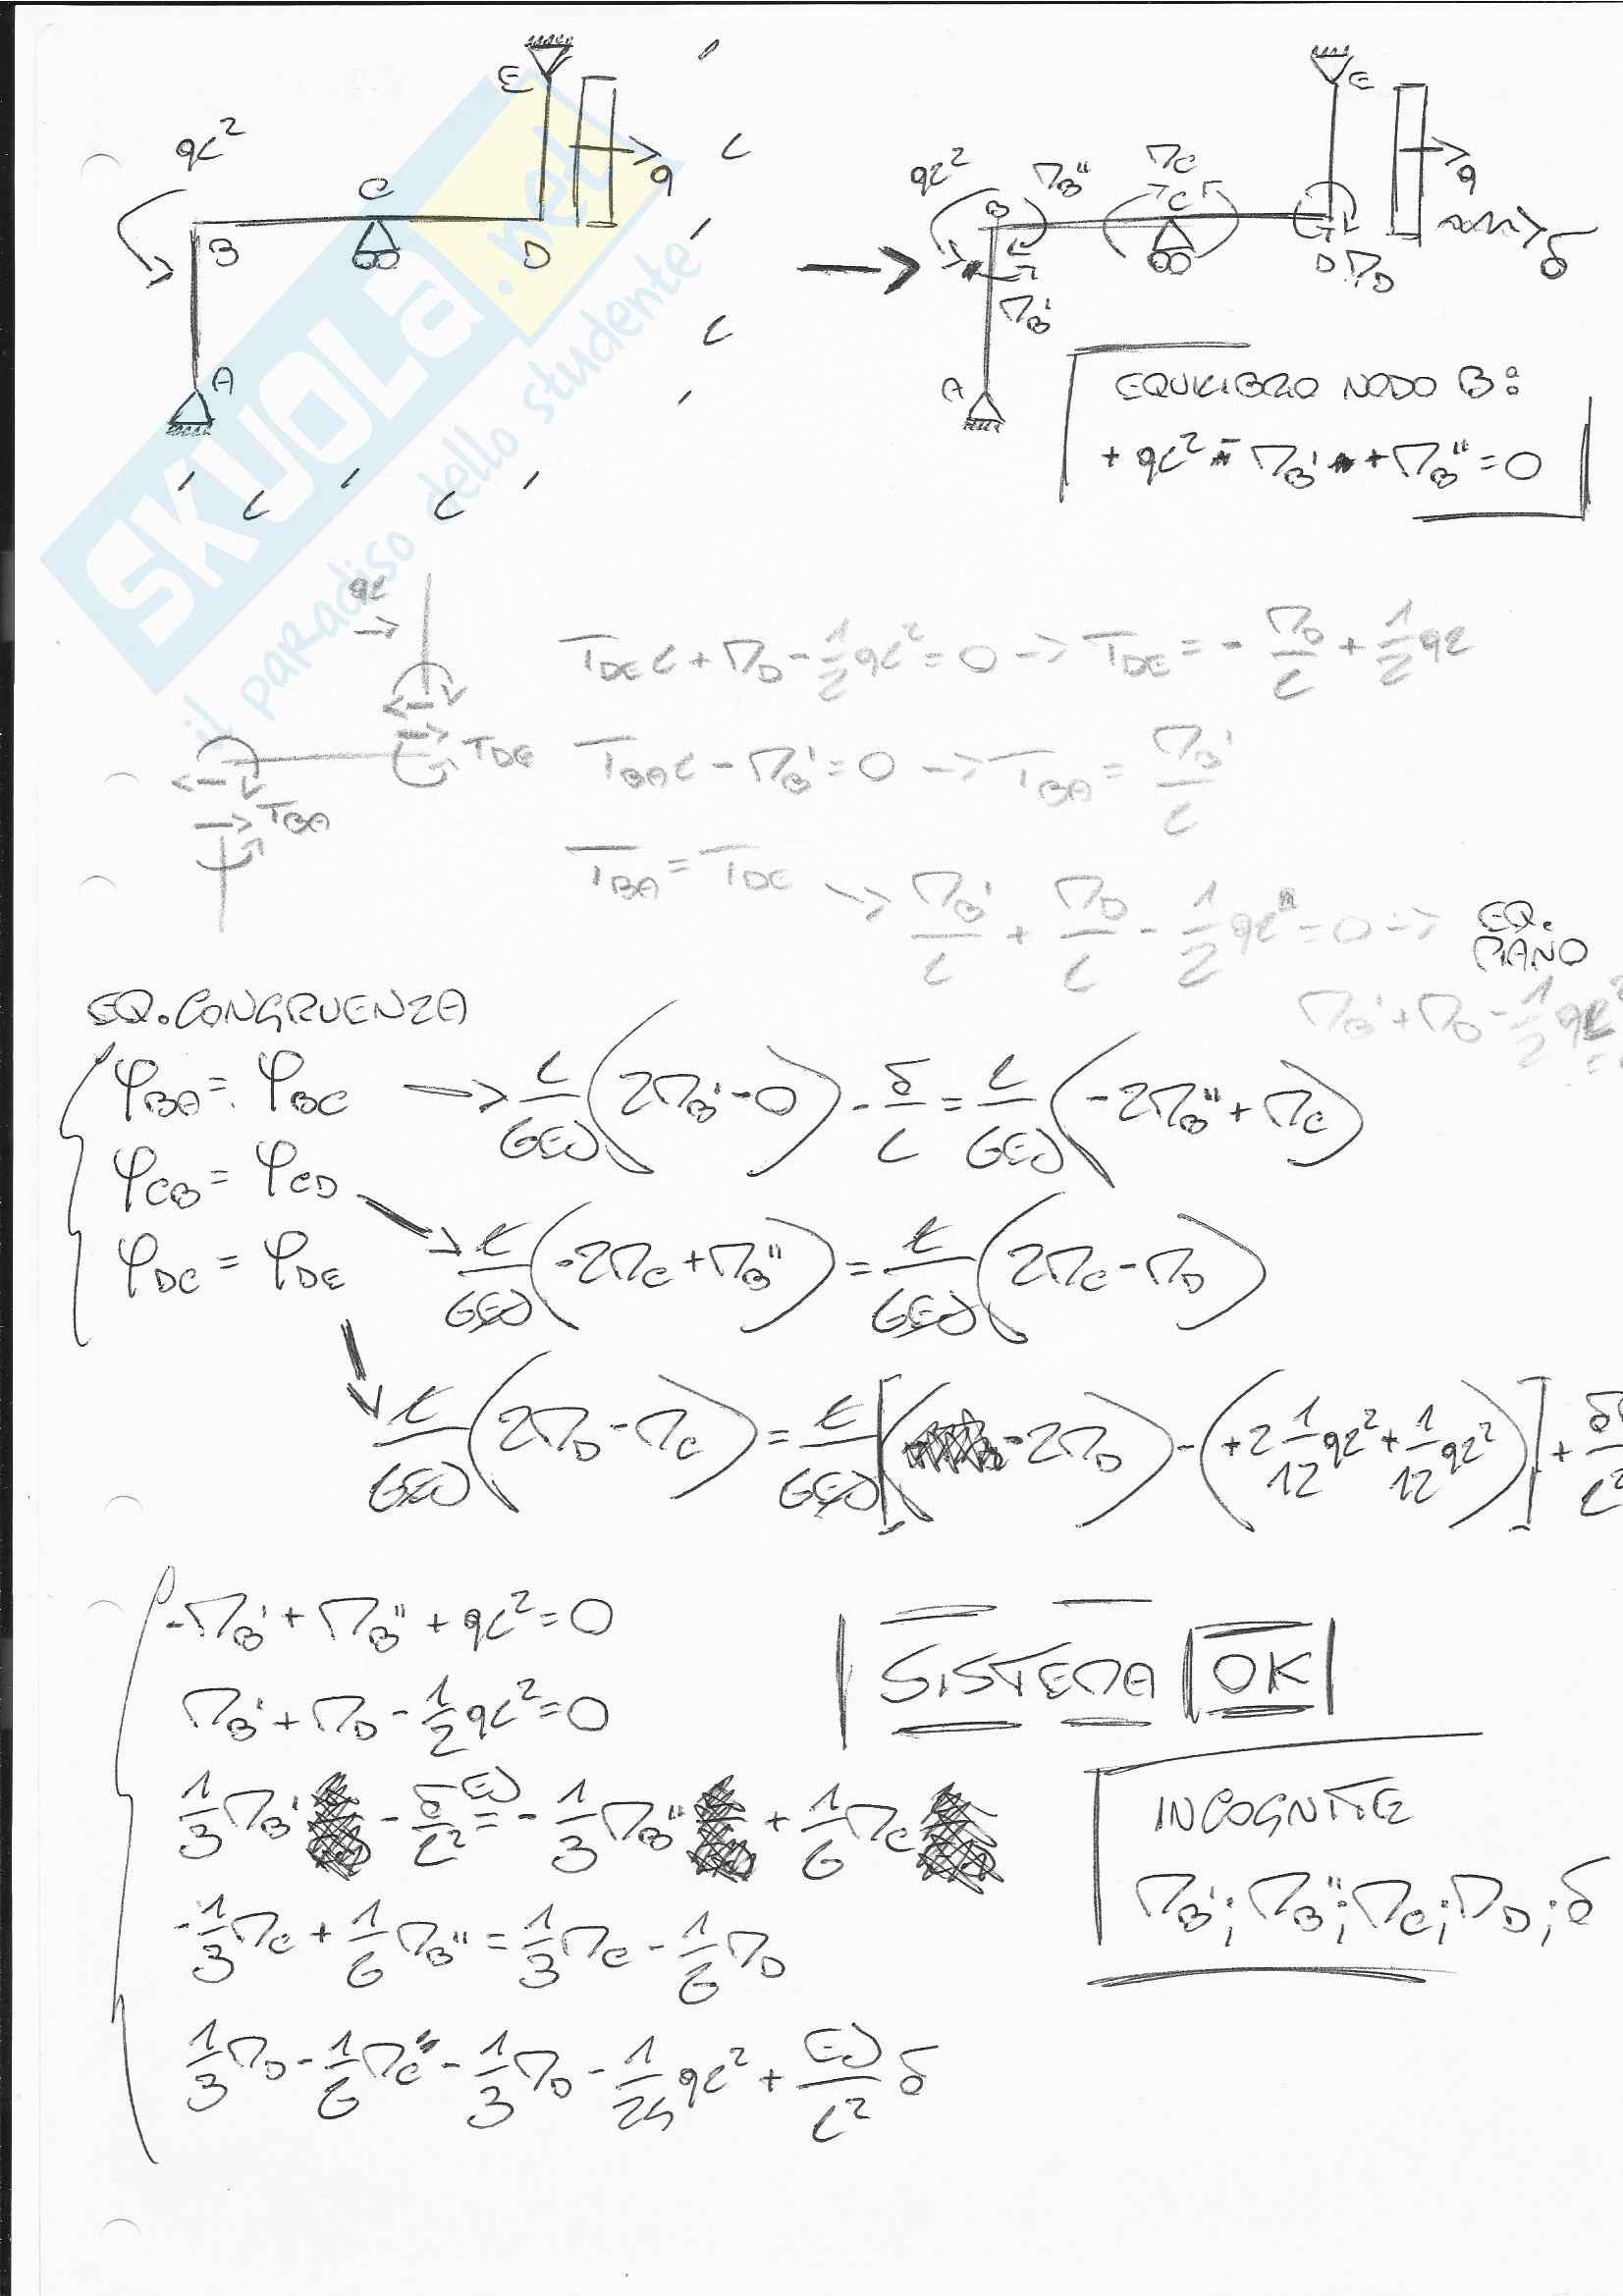 E
qL²
C
q
L
B
D
A
L
L
L
SKUOLA.net
il paradiso dello studente
E
qL²
M_B''
M_C
q
B
C
D
M_D
δ
M_B'
A
EQUILIBRIO NODO B:
+ qL² - M_B' + M_B'' = 0
qL
T_DE L + M_D - 1/2 qL² = 0 -> T_DE = - M_D/L + 1/2 qL
T_DE
T_BA L - M_B' = 0 -> T_BA = M_B'/L
T_BA
T_BA = T_DE -> M_B'/L + M_D/L - 1/2 qL = 0 -> EQ. PIANO
M_B' + M_D - 1/2 qL²
EQ. CONGRUENZA
φ_BA = φ_BC -> L/6EJ (2M_B' - 0) - δ/L = L/6EJ (-2M_B'' + M_C)
φ_CB = φ_CD -> L/6EJ (-2M_C + M_B'') = L/6EJ (2M_C - M_D)
φ_DC = φ_DE
L/6EJ (2M_D - M_C) = L/6EJ [(-2M_D) - (+2 1/12 qL² + 1/12 qL²)] +
-M_B' + M_B'' + qL² = 0
M_B' + M_D - 1/2 qL² = 0
1/3 M_B' - δEJ/L² = - 1/3 M_B'' + 1/6 M_C
-1/3 M_C + 1/6 M_B'' = 1/3 M_C - 1/6 M_D
1/3 M_D - 1/6 M_C - 1/3 M_D - 1/24 qL² + EJ/L² δ
SISTEMA OK
INCOGNITE
M_B'; M_B''; M_C; M_D; δ